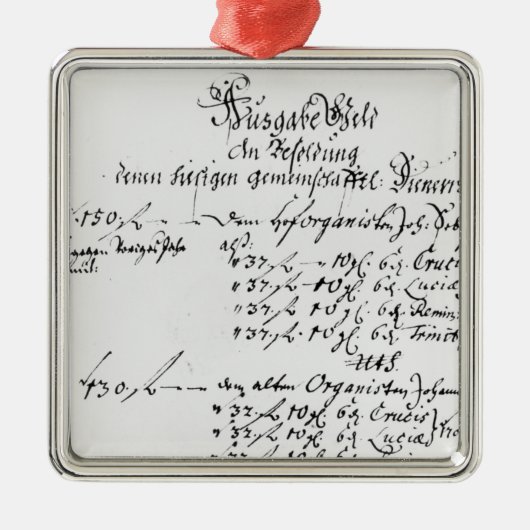 Ausgabe Geld
An Besoldung
denen hiesigen gemeinschafftl: Dienern
150. fl — — dem Hoforganisten Joh: Seb
gegen voriges Jahr
mit:
alß:
" 37. fl — 10 gl. 6 d. Crucis
" 37. fl — 10 gl. 6 d. Luciæ
" 37. fl — 10 gl. 6 d. Remin
" 37. fl — 10 gl. 6 d. Trinit
uts.
130. fl — — dem alten Organisten Johann
" 32. fl 10 gl. 6 d. Crucis
" 32. fl 10 gl. 6 d. Luciæ